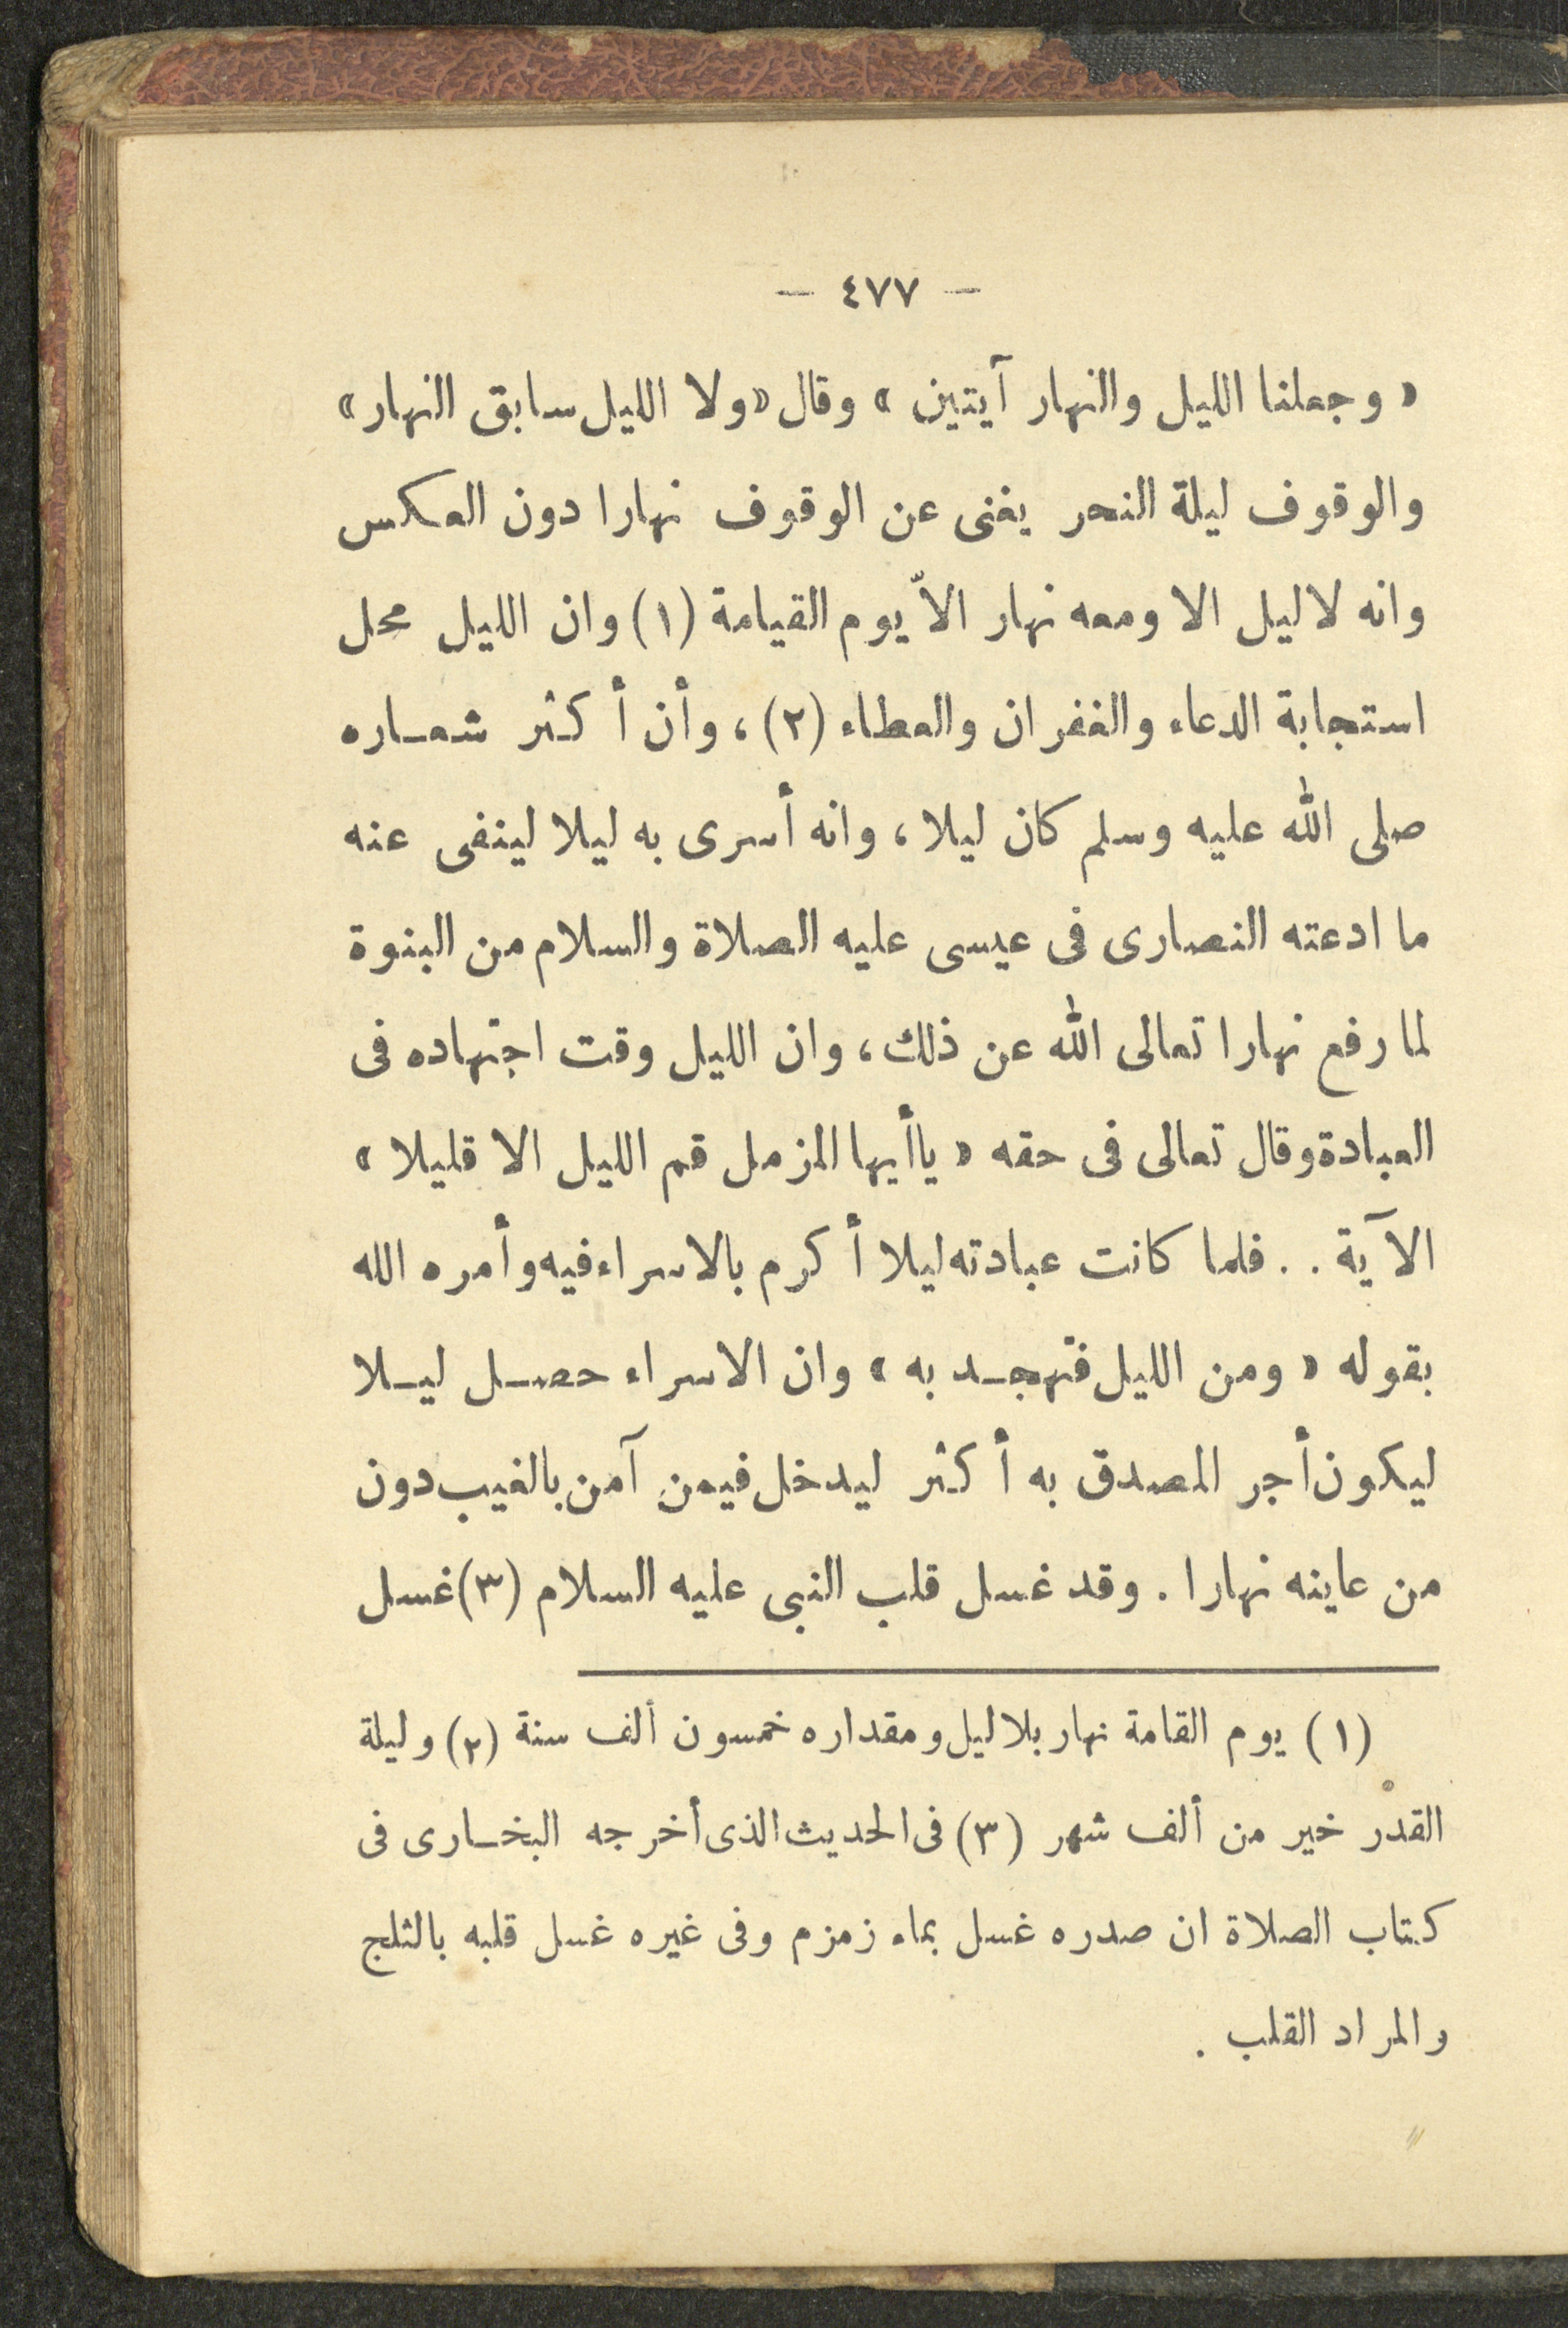 — ٤٧٧ —
« وجعلنا الليل والنهار آيتين » وقال «ولا الليل سابق النهار»
والوقوف ليلة النحر يغنى عن الوقوف نهارا دون العكس
وانه لا ليل الا ومعه نهار الاّ يوم القيامة (١) وان الليل محل
استجابة الدعاء والغفران والعطاء (٢)، وأن أكثر شعاره
صلى الله عليه وسلم كان ليلا، وانه أسرى به ليلا لينفى عنه
ما ادعته النصارى فى عيسى عليه الصلاة والسلام من البنوة
لما رفع نهارا تعالى الله عن ذلك، وان الليل وقت اجتهاده فى
العبادة وقال تعالى فى حقه « ياأيها المزمل قم الليل الا قليلا »
الآية .. فلما كانت عبادته ليلا أكرم بالاسراء فيه وأمره الله
بقوله « ومن الليل فتهجد به » وان الاسراء حصل ليلا
ليكون أجر المصدق به أكثر ليدخل فيمن آمن بالغيب دون
من عاينه نهارا . وقد غسل قلب النبى عليه السلام (٣) غسل
(١) يوم القامة نهار بلا ليل ومقداره خمسون ألف سنة (٢) وليلة
القدْر خير من ألف شهر (٣) فى الحديث الذى أخرجه البخارى فى
كتاب الصلاة ان صدره غسل بماء زمزم وفى غيره غسل قلبه بالثلج
والمراد القلب .